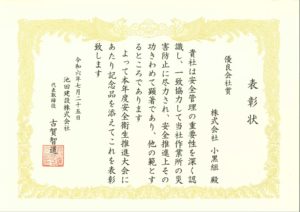 表彰状
優良会社賞
株式会社 小黒組 殿
貴社は安全管理の重要性を深く認
識し、一致協力して当社作業所の災
害防止に尽力され、安全推進上その
功きわめて顕著であり、他の範とす
るところであります
よって本年度安全衛生推進大会に
あたり記念品を添えてこれを表彰
致します
令和六年七月二十五日
池田建設株式会社
代表取締役 古賀智道